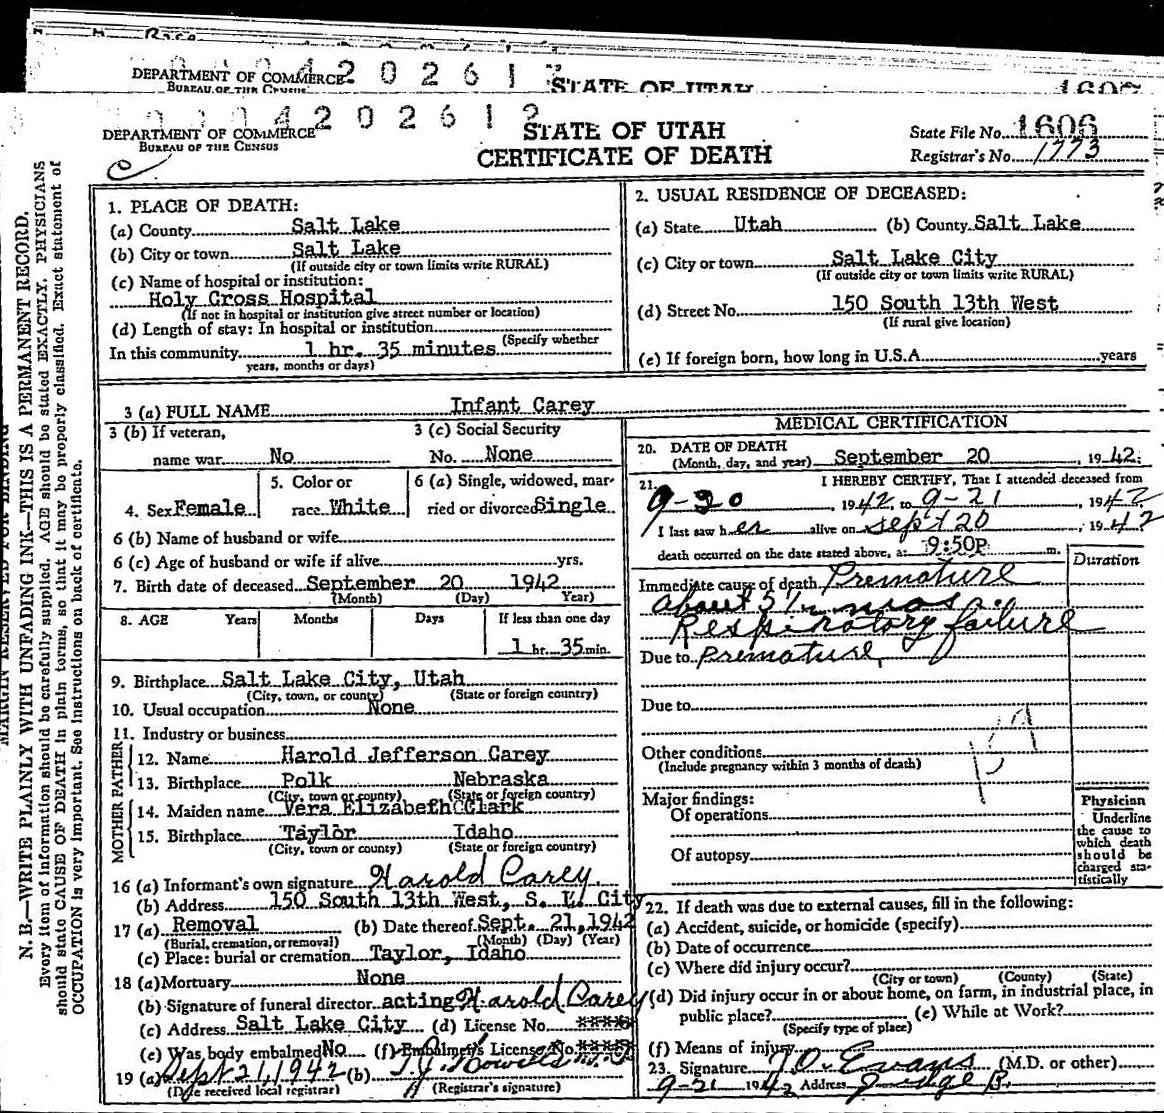 DEPARTMENT OF COMMERCE
BUREAU OF THE CENSUS
STATE OF UTAH
1607
DEPARTMENT OF COMMERCE
BUREAU OF THE CENSUS
4 2 0 2 6 1 2
STATE OF UTAH
CERTIFICATE OF DEATH
State File No. 1606
Registrar's No. 1773
N. B.—WRITE PLAINLY WITH UNFADING INK—THIS IS A PERMANENT RECORD.
Every item of information should be carefully supplied. AGE should be stated EXACTLY. PHYSICIANS
should state CAUSE OF DEATH in plain terms, so that it may be properly classified. Exact statement of
OCCUPATION is very important. See instructions on back of certificate.
1. PLACE OF DEATH:
(a) County Salt Lake
(b) City or town Salt Lake
(If outside city or town limits write RURAL)
(c) Name of hospital or institution:
Holy Cross Hospital
(If not in hospital or institution give street number or location)
(d) Length of stay: In hospital or institution
(Specify whether
In this community 1 hr. 35 minutes
years, months or days)
2. USUAL RESIDENCE OF DECEASED:
(a) State Utah (b) County Salt Lake
(c) City or town Salt Lake City
(If outside city or town limits write RURAL)
(d) Street No. 150 South 13th West
(If rural give location)
(e) If foreign born, how long in U.S.A. years
3 (a) FULL NAME Infant Carey
3 (b) If veteran, 3 (c) Social Security
name war No No. None
5. Color or 6 (a) Single, widowed, mar-
4. Sex Female race White ried or divorced Single
6 (b) Name of husband or wife
6 (c) Age of husband or wife if alive yrs.
7. Birth date of deceased September 20 1942
(Month) (Day) Year)
8. AGE Years Months Days If less than one day
1 hr. 35 min.
9. Birthplace Salt Lake City, Utah
(City, town, or county) (State or foreign country)
10. Usual occupation None
11. Industry or business
FATHER
12. Name Harold Jefferson Carey
13. Birthplace Polk Nebraska
(City, town or county) (State or foreign country)
MOTHER
14. Maiden name Vera Elizabeth Clark
15. Birthplace Taylor Idaho
(City, town or county) (State or foreign country)
16 (a) Informant's own signature Harold Carey.
(b) Address 150 South 13th West, S. L. City
17 (a) Removal (b) Date thereof Sept. 21, 1942
(Burial, cremation, or removal) (Month) (Day) (Year)
(c) Place: burial or cremation Taylor, Idaho
18 (a) Mortuary None
(b) Signature of funeral director acting Harold Carey
(c) Address Salt Lake City (d) License No. ****
(e) Was body embalmed No (f) Embalmer's License No. ****
19 (a) Sept 21, 1942 (b)
(Date received local registrar) (Registrar's signature)
MEDICAL CERTIFICATION
20. DATE OF DEATH
(Month, day, and year) September 20, 1942.
21. I HEREBY CERTIFY, That I attended deceased from
9-20, 1942, to 9-21, 1942
I last saw her alive on Sept 20, 1942
death occurred on the date stated above, at 9:50P m.
Duration
Immediate cause of death Premature
about 5½ mos.
Respiratory failure
Due to Premature,
Due to
Other conditions
(Include pregnancy within 3 months of death)
Major findings:
Of operations
Of autopsy
Physician
Underline
the cause to
which death
should be
charged sta-
tistically
22. If death was due to external causes, fill in the following:
(a) Accident, suicide, or homicide (specify)
(b) Date of occurrence
(c) Where did injury occur?
(City or town) (County) (State)
(d) Did injury occur in or about home, on farm, in industrial place, in
public place? (e) While at Work?
(Specify type of place)
(f) Means of injury
23. Signature Evans (M.D. or other)
9-21 1942 Address Judge B.